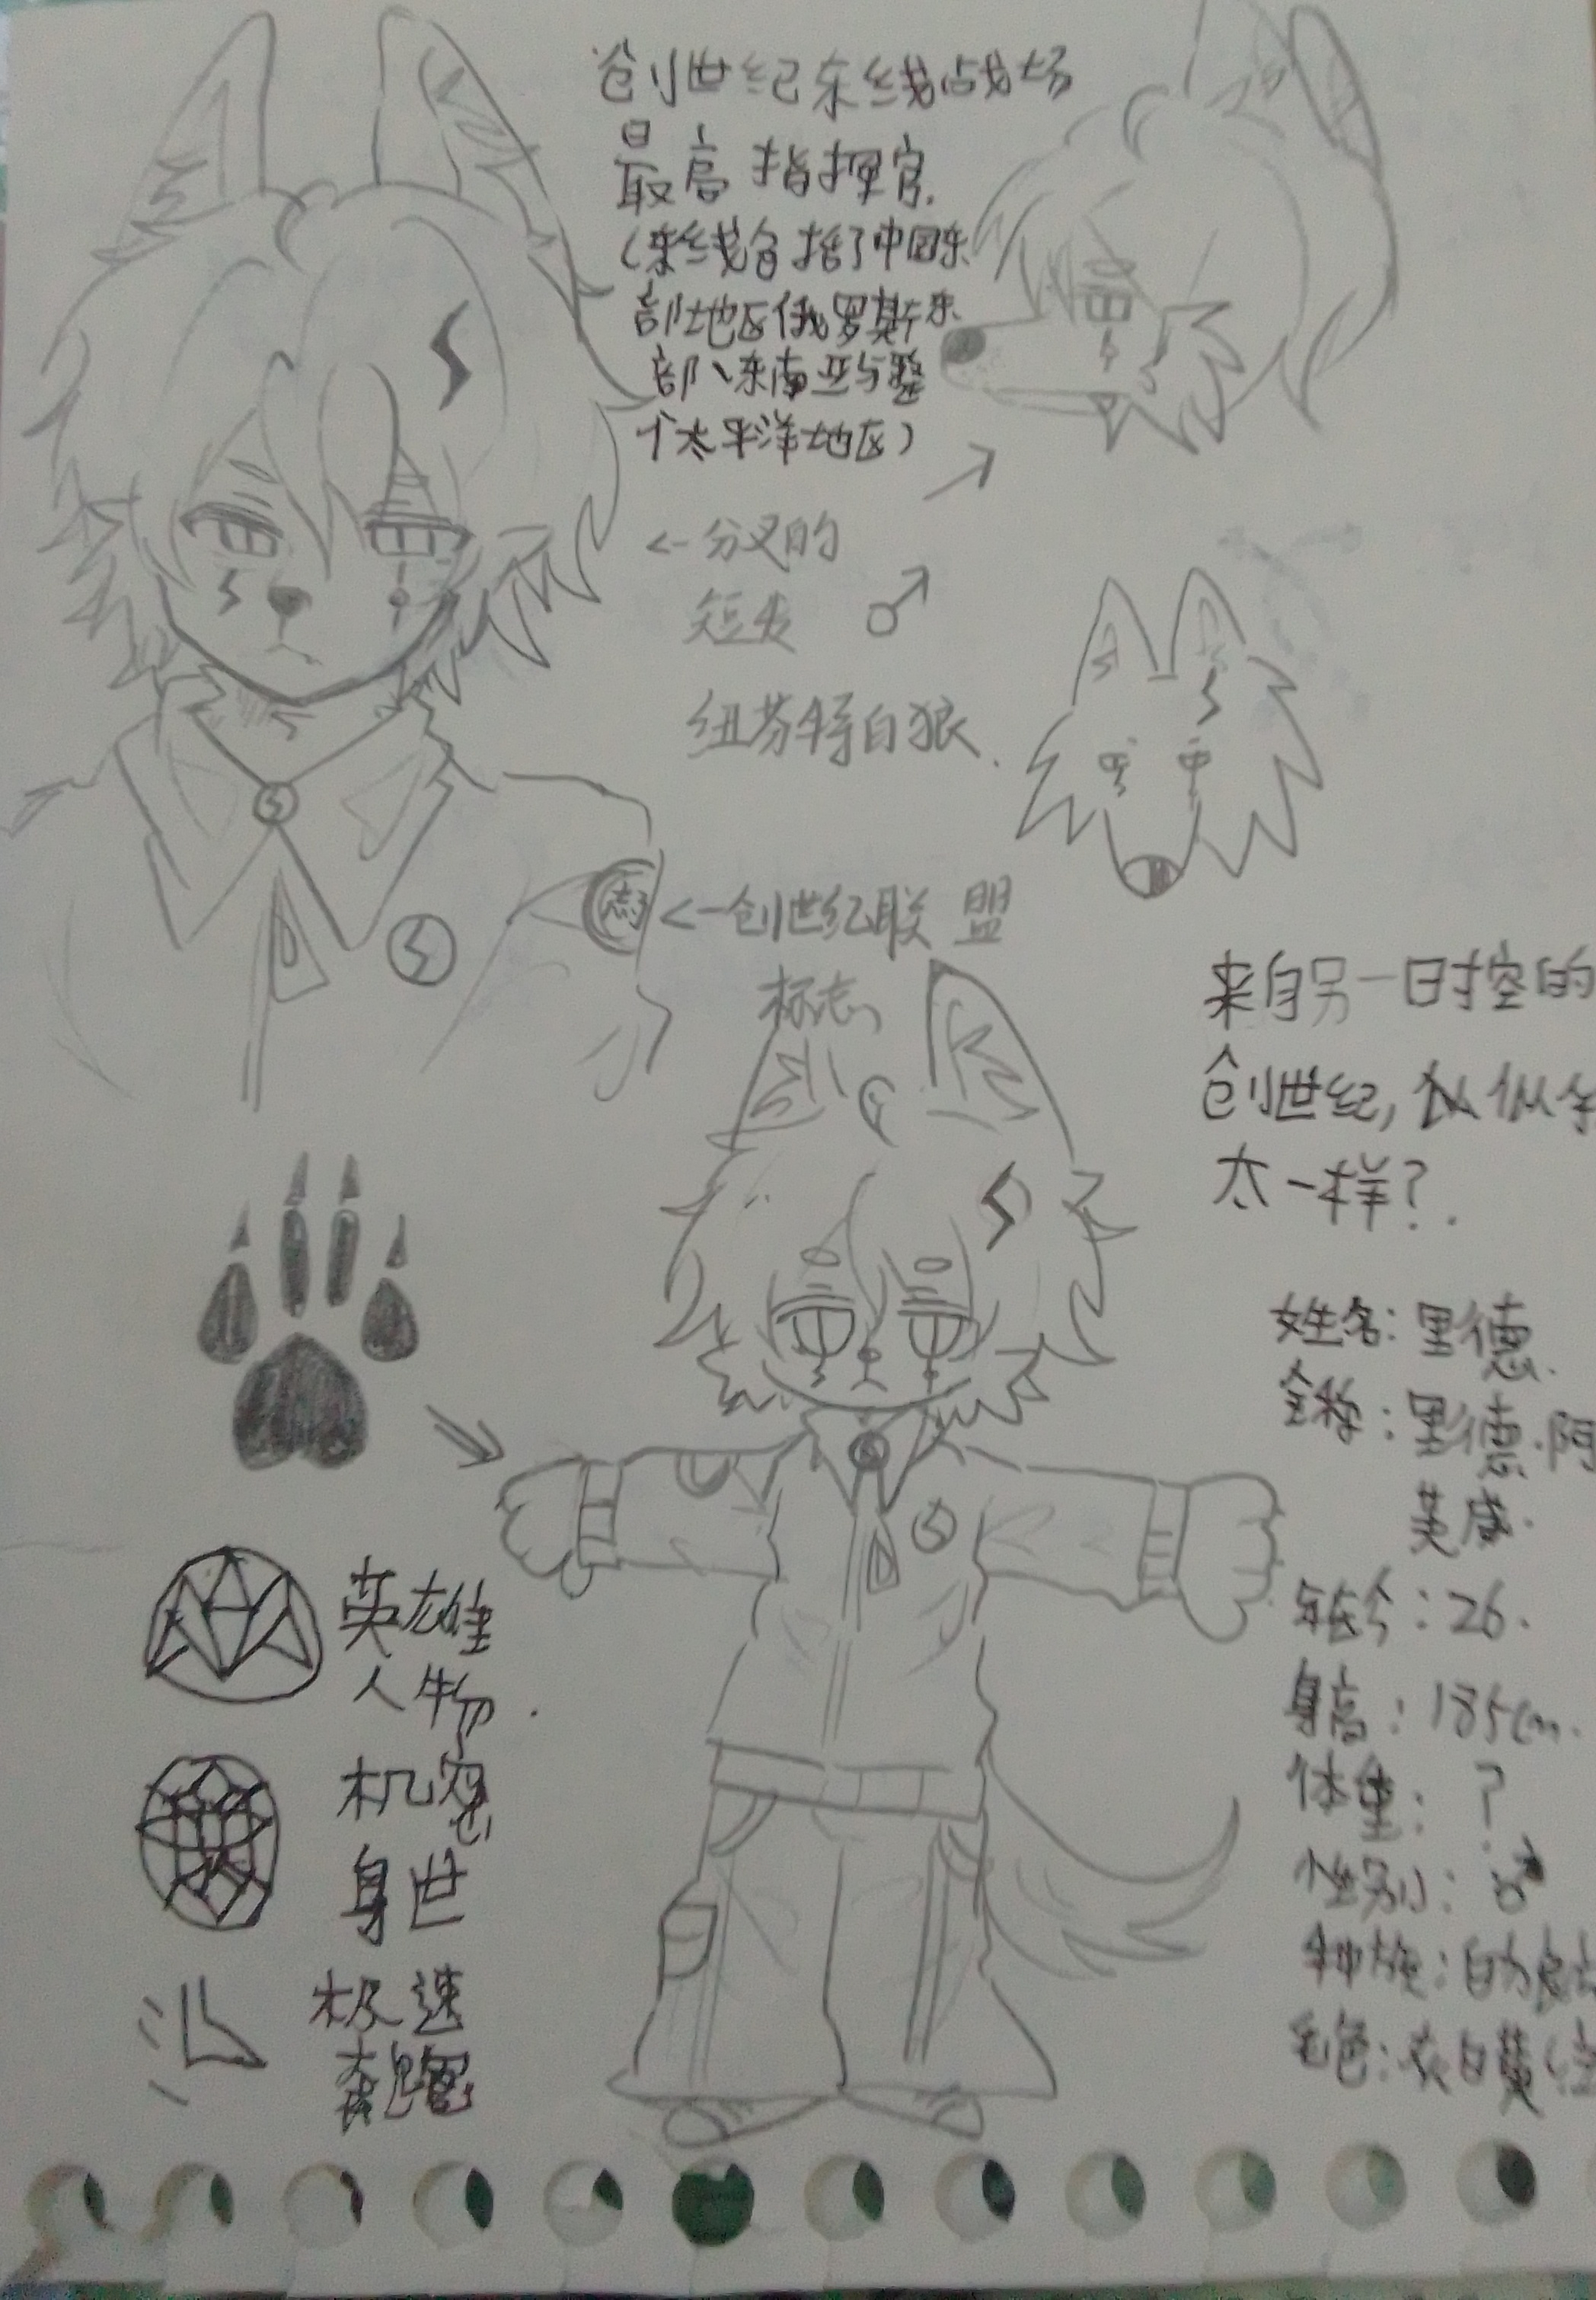 创世纪东线战场
最高指挥官.
(东线包括了中国东
部地区俄罗斯东
部、东南亚与整
个太平洋地区)
←分叉的
短发 ♂
纽芬特白狼.
←创世纪联盟
标志
来自另一时空的
创世纪,
太一样?.
姓名:里德.
全称:里德·阿
英威.
年龄:26.
身高:185cm.
体重:?
性别:♂
种族:白狼
毛色:灰白黄(
英雄
人物.
机密
身世
极速
奔跑